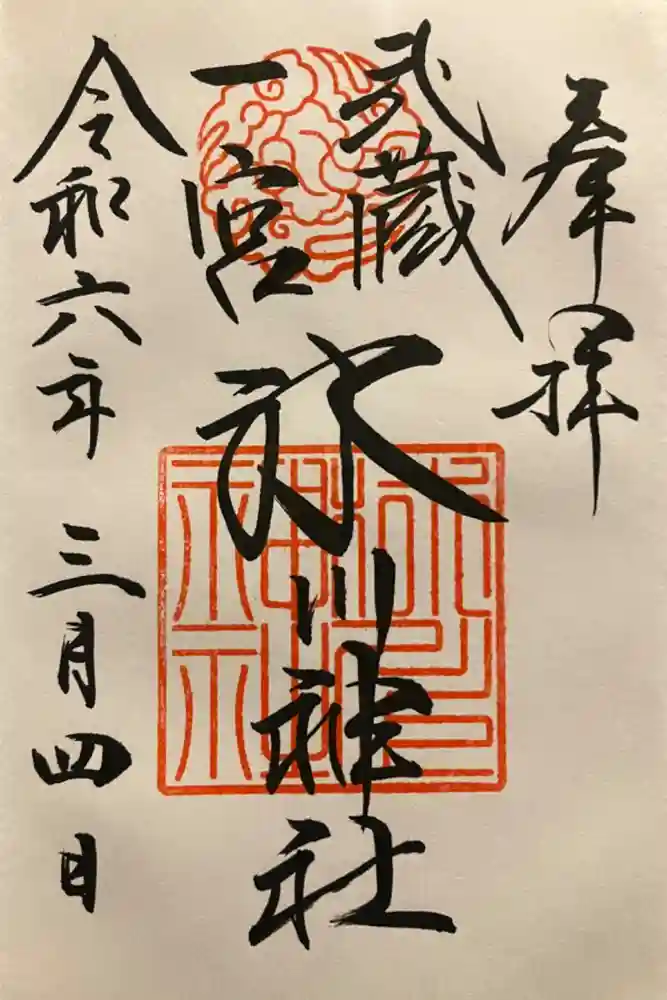 奉拝
武蔵
一宮
氷川神社
令和六年三月四日